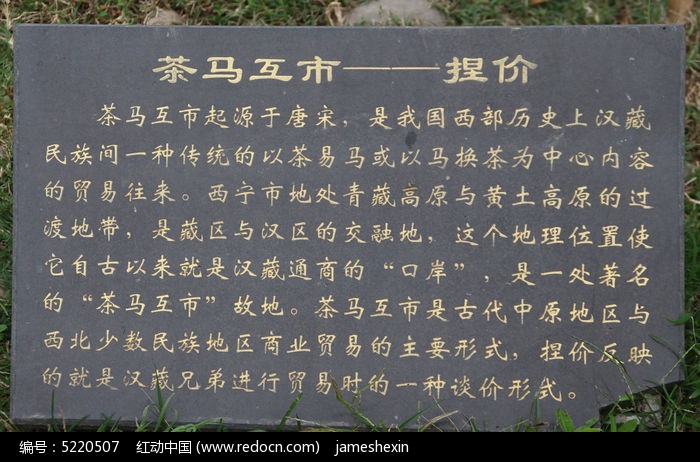 茶马互市——捏价
茶马互市起源于唐宋，是我国西部历史上汉藏
民族间一种传统的以茶易马或以马换茶为中心内容
的贸易往来。西宁市地处青藏高原与黄土高原的过
渡地带，是藏区与汉区的交融地，这个地理位置使
它自古以来就是汉藏通商的“口岸”，是一处著名
的“茶马互市”故地。茶马互市是古代中原地区与
西北少数民族地区商业贸易的主要形式，捏价反映
的就是汉藏兄弟进行贸易时的一种谈价形式。
编号：5220507 红动中国 (www.redocn.com) jameshexin